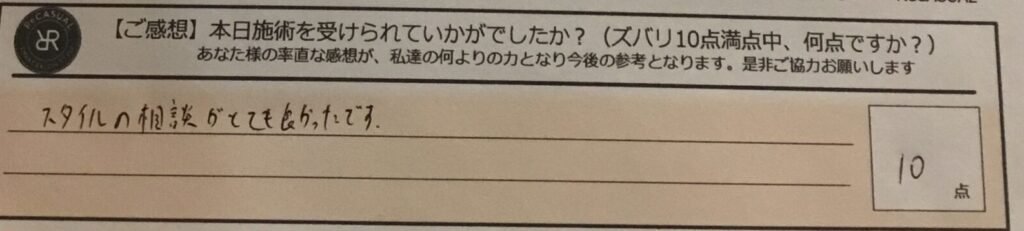 【ご感想】本日施術を受けられていかがでしたか？（ズバリ10点満点中、何点ですか？）
あなた様の率直な感想が、私達の何よりの力となり今後の参考となります。是非ご協力お願いします
スタイルの相談がとても良かったです.
10
点